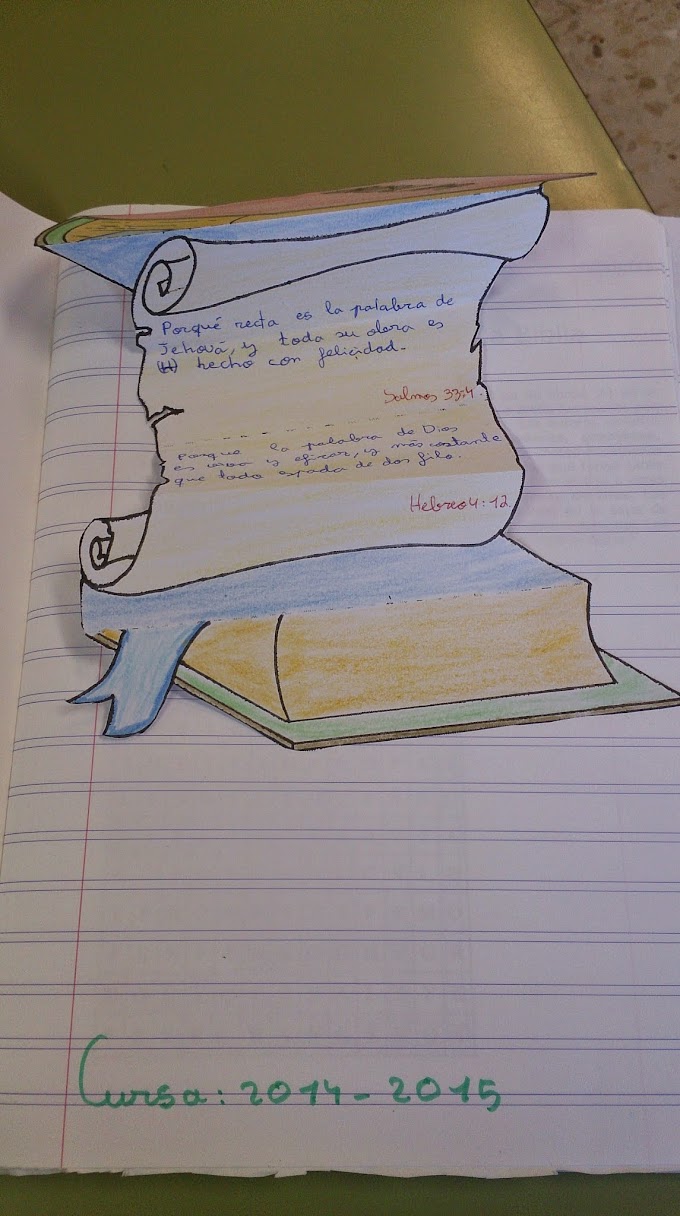 Porqué recta es la palabra de
Jehová, y toda su obra es
(H) hecho con felicidad.
Salmos 33:4.
Porque la palabra de Dios
es viva y eficaz, y más costante
que toda espada de dos filo.
Hebreo 4:12
Cursa: 2014-2015